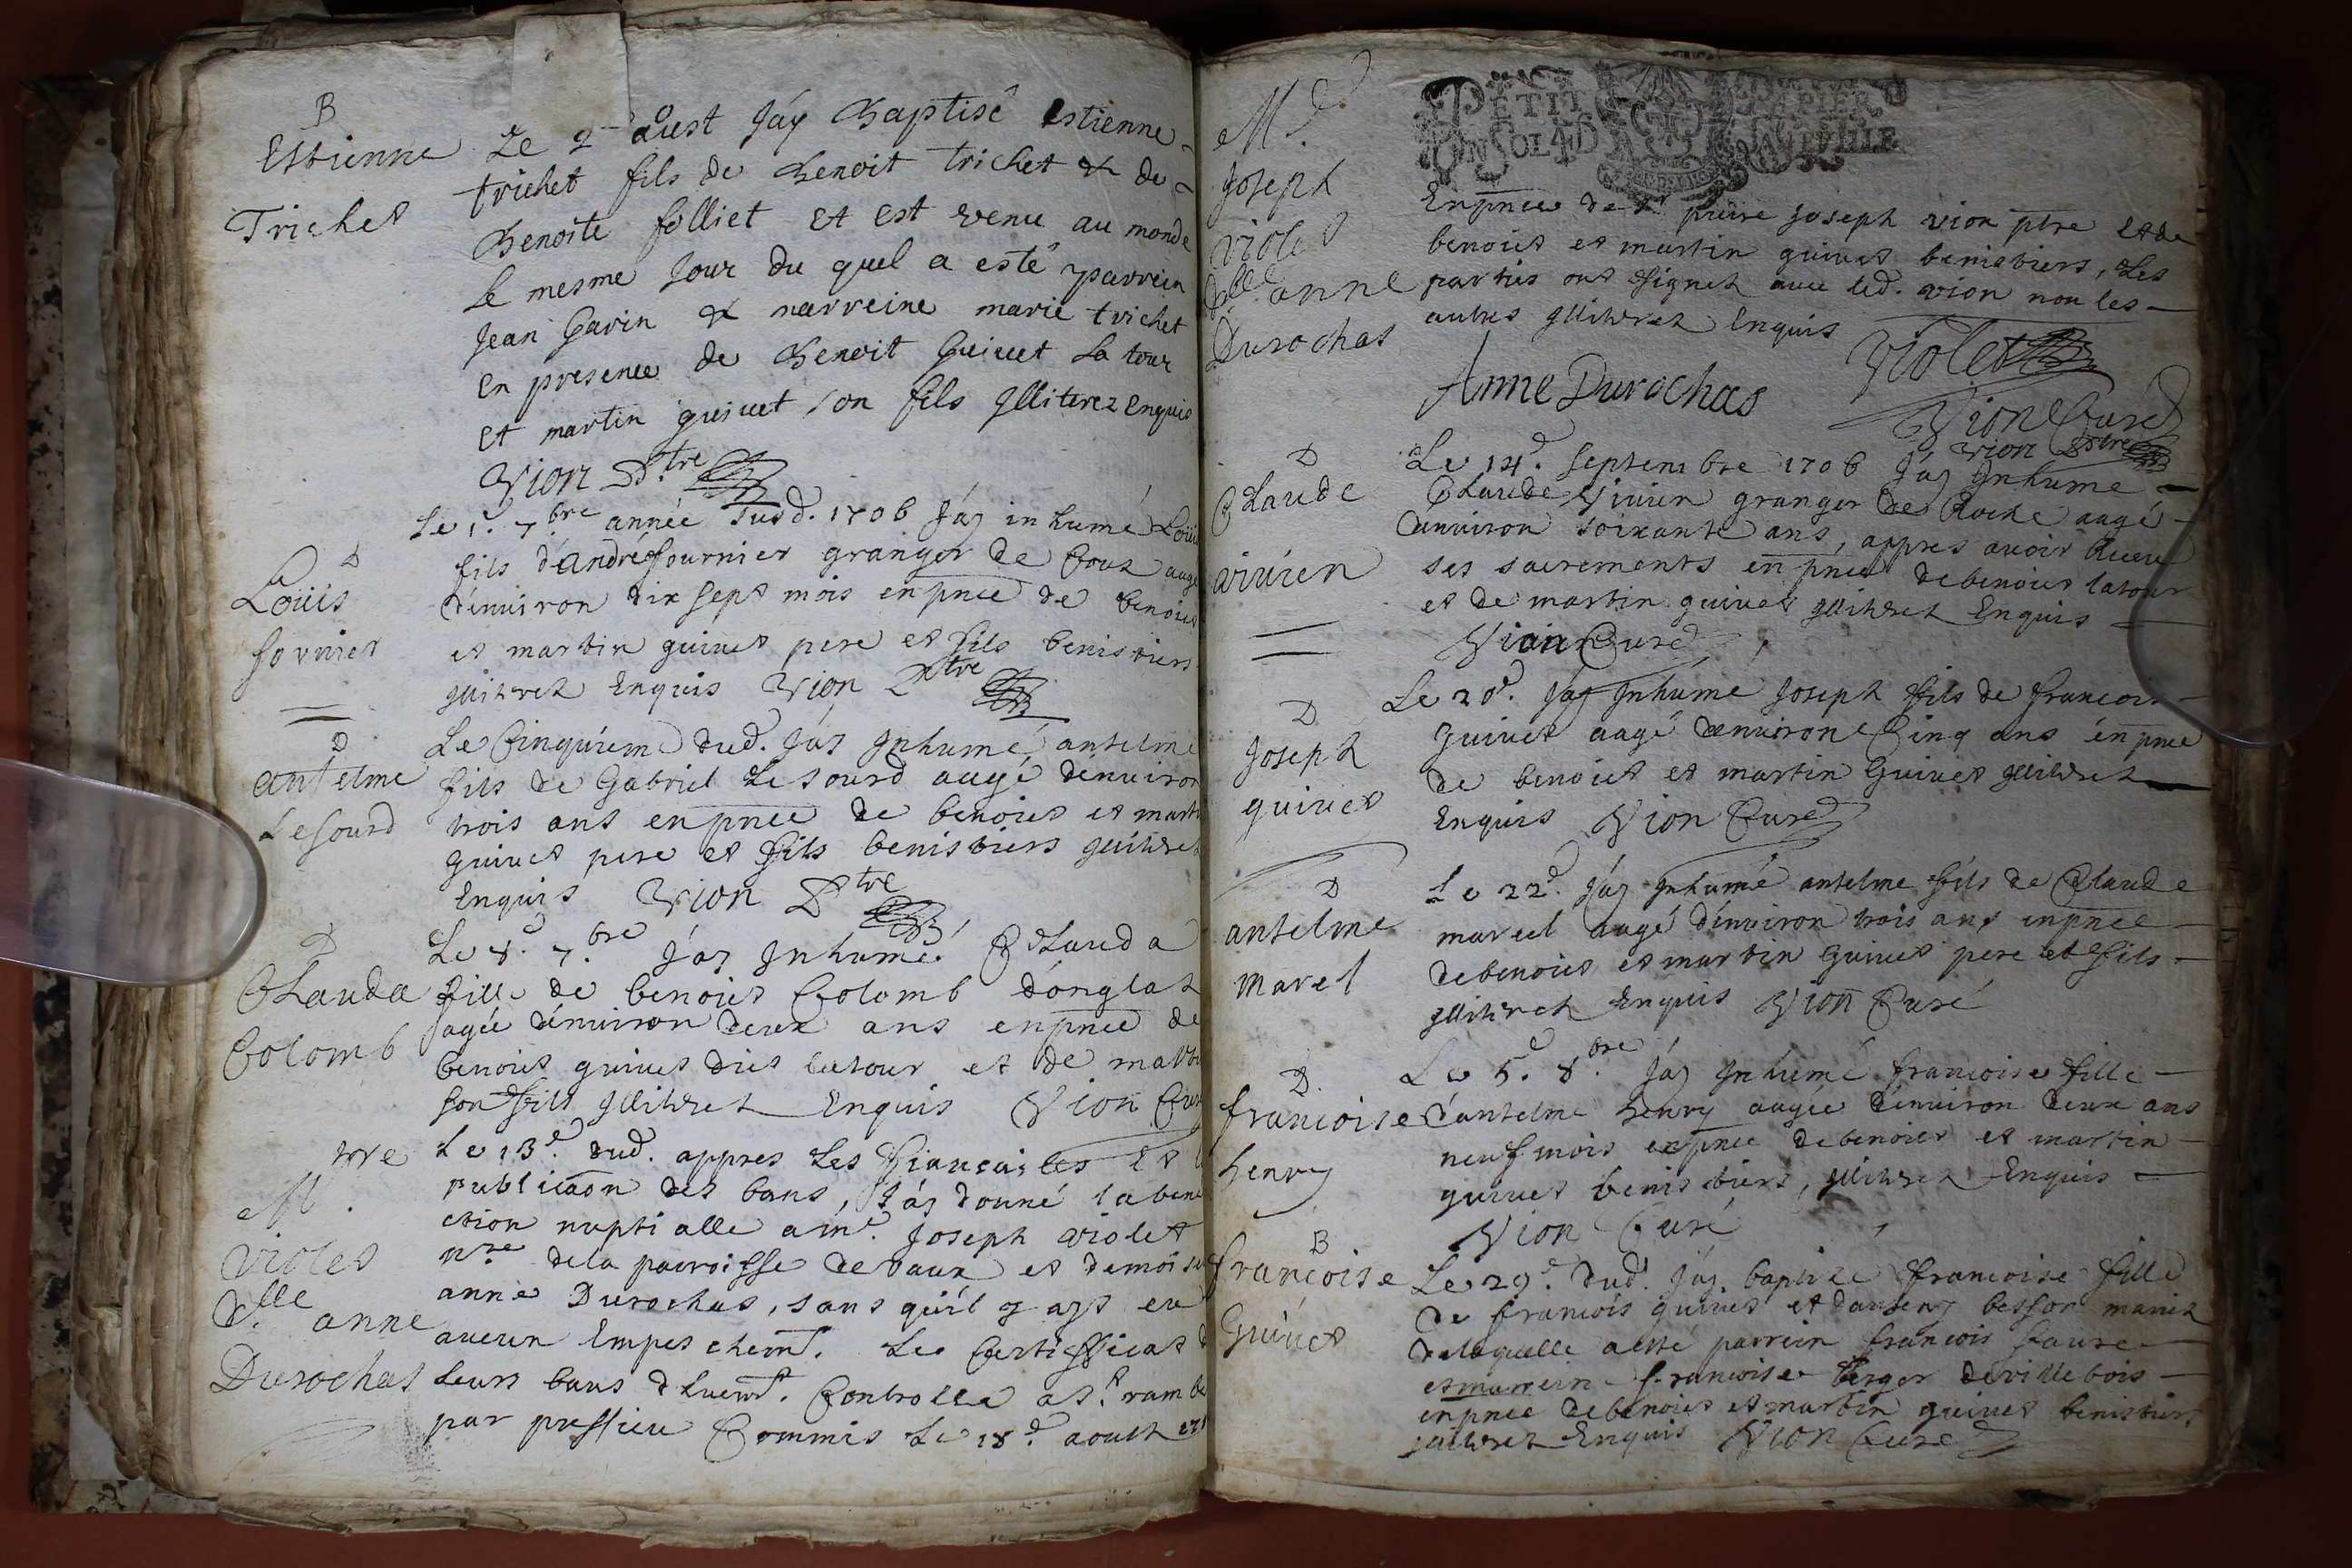 B
Estienne
Trichet
Le 2 aust Jáy Baptisé Estienne
trichet fils de Benoit trichet & de
Benoite folliet et est venu au monde
le mesme Jour du quel a esté parrein
Jean Gavin & marreine marie trichet
en presence de Benoit Guivet La tour
et martin guivet son fils Jlliterez enquis
Vion Ptre
D
Loüis
fornier
Le 1.er 7bre année susd. 1706 Jáy inhumé Loüis
fils d'André fournier granger de
d'environ dix sept mois en pnce de benoict
et martin guivet pere et fils benistiers
Jlliterez Enquis Vion Ptre
D
antelme
Lesourd
Le Cinquiéme dud. Jáy Jnhumé antelme
fils de Gabriel Lesourd aagé d'environ
trois ans en pnce de benoict et martin
guivet pere et fils benistiers Jlliterez
Enquis Vion Ptre
D
Clauda
Colomb
Le 8.e 7.bre Jáy Jnhumé Clauda
fille de benoict Colomb d'onglas
agée d'environ deux ans en pnce de
benoict guivet dict latour et de martin
son fils Jlliterez Enquis Vion Curé
M. tre
Violet
d.lle anne
Durochat
Le 13.e dud. appres Les fiancailles et l
publicaon des bans, Jáy donné la bene
ction nuptialle a m.e Joseph violet
n.re de la parroisse de vaux et demoiselle
anne Durochas, sans qu'il y ays eu
aucun Empeschemt. Le Certifficat d
leurs bans dhuemt. Controlle a St. rambe
par pressieu Commis Le 18.e aoust
M.e
Joseph
violet
d.lle anne
Durochas
PETIT PAPIER
UN SOL 4 D LA FEUILLE
En pnce de Sr pierre Joseph vion ptre et de
benoict et martin guivet benistiers, Les
parties ont signet avec led. vion non les
autres Jlliterez Enquis
Violet
Anne Durochas
Vion Curé
Vion Ptre
D
Claude
vivien
Le 14.e septembre 1706 Jáy Jnhumé
Claude Vivien granger de Roche aagé
d'environ soixante ans, appres avoir Receu
ses sacrements en pnce de benoict latour
et de martin guivet Jlliterez Enquis
Vion Curé
D
Joseph
guivet
Le 20.e Jáy Jnhumé Joseph fils de francois
guivet aagé d'environ Cinq ans en pnce
de benoict et martin Guivet Jlliterez
Enquis Vion Curé
D
antelme
marel
Le 22.e Jáy Jnhumé antelme fils de Claude
marcel aagé d'environ trois ans en pnce
de benoict et martin Guivet pere et fils
Jlliterez Enquis Vion Curé
D.
francoise
henry
Le 5.e 8.bre Jáy Jnhumé francoise fille
d'antelme henry aagée d'environ deux ans
neuf mois en pnce de benoict et martin
guivet benistiers, Jlliterez Enquis
Vion Curé
B
francoise
Guivet
Le 29.e dud. Jáy baptizé francoise fille
de francois guivet et d'antheny besson mariez
de laquelle a esté parrein francois faure
et marrein francoise berger de villebois
en pnce de benoict et martin guivet benistiers
Jlliterez Enquis Vion Curé